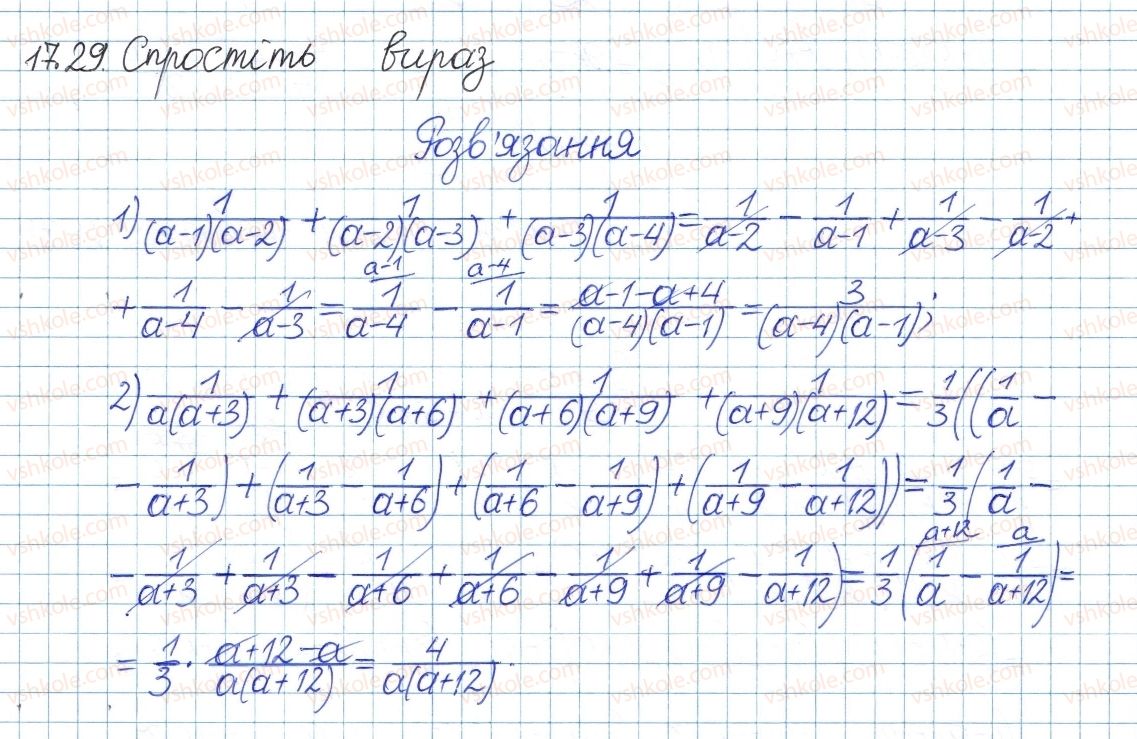 17.29. Спростіть вираз
Розв'язання
1) 1/((a-1)(a-2)) + 1/((a-2)(a-3)) + 1/((a-3)(a-4)) = 1/(a-2) - 1/(a-1) + 1/(a-3) - 1/(a-2) +
+ 1/(a-4) - 1/(a-3) = 1/(a-4) (a-1) - 1/(a-1) (a-4) = (a-1-a+4)/((a-4)(a-1)) = 3/((a-4)(a-1));
2) 1/(a(a+3)) + 1/((a+3)(a+6)) + 1/((a+6)(a+9)) + 1/((a+9)(a+12)) = 1/3((1/a -
- 1/(a+3)) + (1/(a+3) - 1/(a+6)) + (1/(a+6) - 1/(a+9)) + (1/(a+9) - 1/(a+12))) = 1/3(1/a -
- 1/(a+3) + 1/(a+3) - 1/(a+6) + 1/(a+6) - 1/(a+9) + 1/(a+9) - 1/(a+12)) = 1/3(1/a (a+12) - 1/(a+12) (a)) =
= 1/3 · (a+12-a)/(a(a+12)) = 4/(a(a+12)).